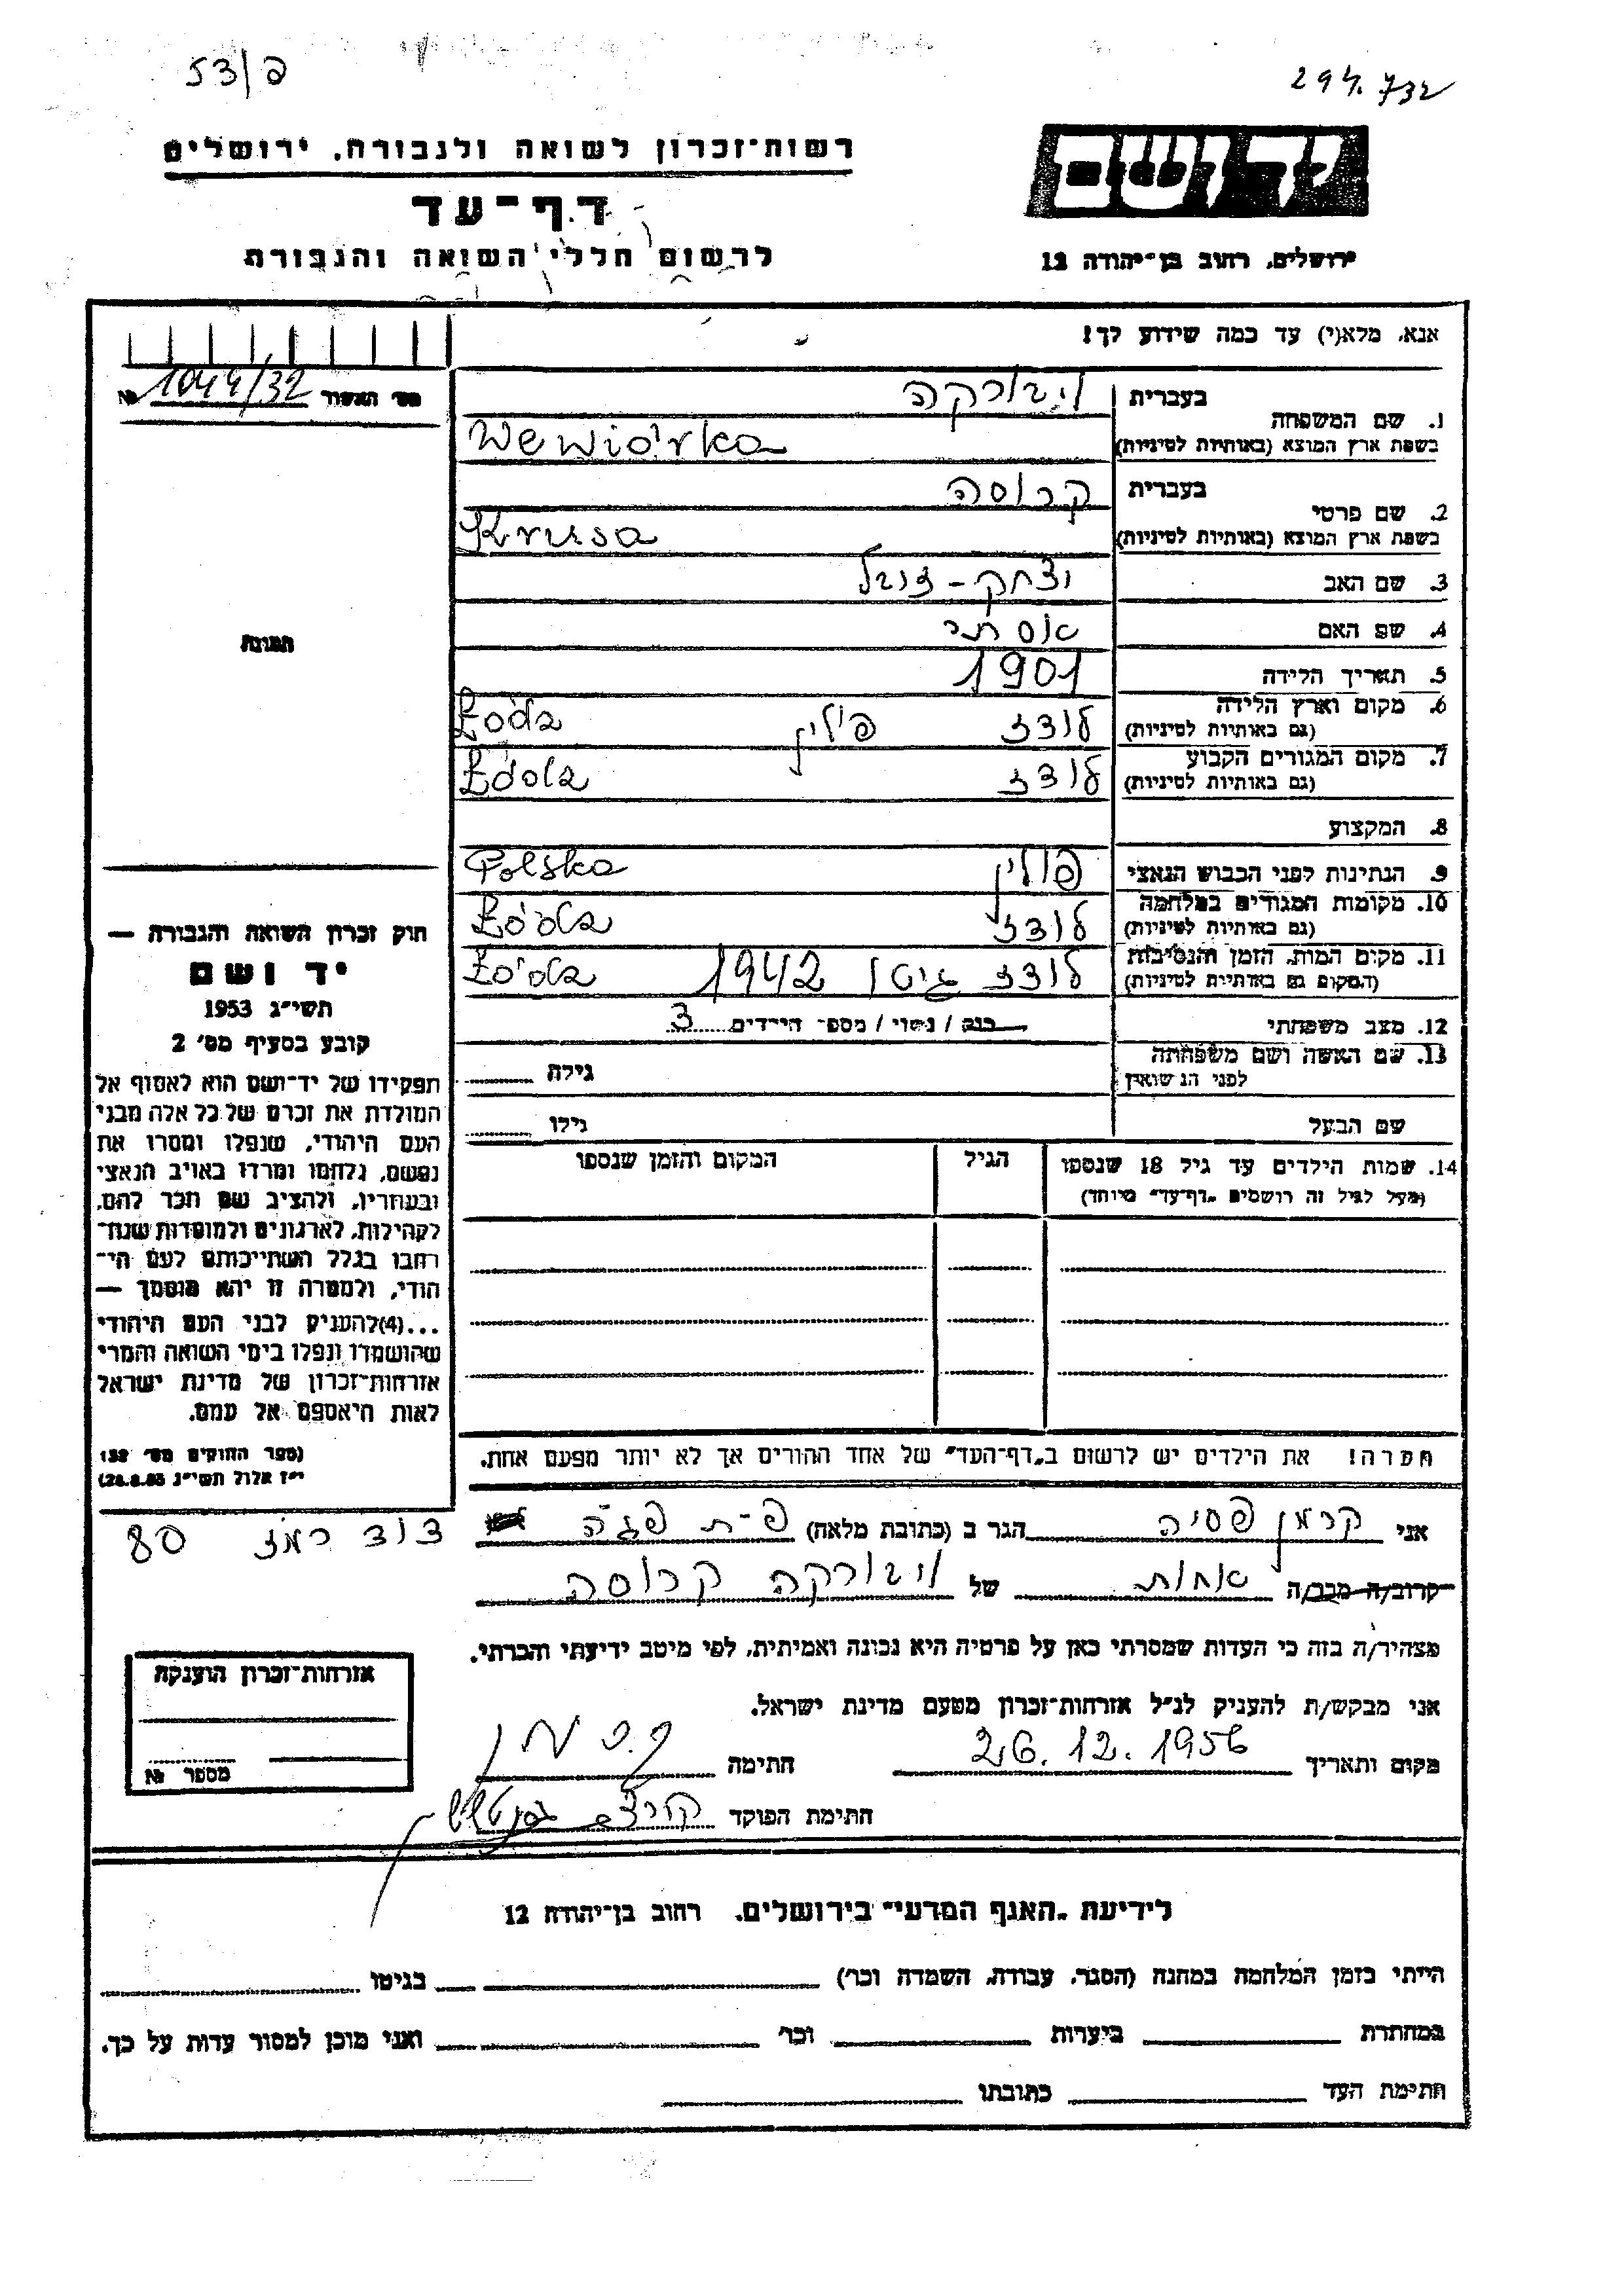 53/פ
294.732
רשות־זכרון לשואה ולגבורה, ירושלים
יד ושם
דף־עד
לרשום חללי השואה והגבורה
ירושלים, רחוב בן־יהודה 12
אנא, מלא(י) עד כמה שידוע לך!
מס׳ האשור 1044/32 №
תמונה
1. שם המשפחה בעברית ויבורקה
בשפת ארץ המוצא (באותיות לטיניות) Wewiórka
2. שם פרטי בעברית קרוסה
בשפת ארץ המוצא (באותיות לטיניות) Krusa
3. שם האב יצחק-
4. שם האם אסתר
5. תאריך הלידה 1901
6. מקום וארץ הלידה
(גם באותיות לטיניות) לודז פולין Łódz
7. מקום המגורים הקבוע
(גם באותיות לטיניות) לודז Łódz
8. המקצוע
9. הנתינות לפני הכבוש הנאצי פולין Polska
10. מקומות המגורים במלחמה
(גם באותיות לטיניות) לודז Łódz
11. מקום המות, הזמן והנסיבות
(המקום גם באותיות לטיניות) לודז גיטו 1942 Łódz
12. מצב משפחתי רוק / נשוי / מספר הילדים 3
13. שם האשה ושם משפחתה
לפני הנשואין גילה
שם הבעל גילו
14. שמות הילדים עד גיל 18 שנספו הגיל המקום והזמן שנספו
(מעל לגיל זה רושמים „דף־עד״ מיוחד)
חוק זכרון השואה והגבורה —
יד ושם
תשי״ג 1953
קובע בסעיף מס׳ 2
תפקידו של יד־ושם הוא לאסוף אל
המולדת את זכרם של כל אלה מבני
העם היהודי, שנפלו ומסרו את
נפשם, נלחמו ומרדו באויב הנאצי
ובעוזריו, ולהציב שם וזכר להם,
לקהילות, לארגונים ולמוסדות שנח־
רבו בגלל השתייכותם לעם הי־
הודי, ולמטרה זו יהא מוסמך —
...(4)להעניק לבני העם היהודי
שהושמדו ונפלו בימי השואה והמרי
אזרחות־זכרון של מדינת ישראל
לאות היאספם אל עמם.
(ספר החוקים מס׳ 132
י״ז אלול תשי״ג 28.8.53)
הערה! את הילדים יש לרשום ב„דף־העד״ של אחד ההורים אך לא יותר מפעם אחת.
אני קרמן פסיה הגר ב (כתובת מלאה) פ-ת
דוד רמז 80
קרוב/ה מכר/ה אחות של ויבורקה קרוסה
מצהיר/ה בזה כי העדות שמסרתי כאן על פרטיה היא נכונה ואמיתית, לפי מיטב ידיעתי והכרתי.
אני מבקש/ת להעניק לנ״ל אזרחות־זכרון מטעם מדינת ישראל.
מקום ותאריך 26.12.1956 חתימה
חתימת הפוקד
אזרחות־זכרון הוענקה
מספר №
לידיעת „האגף המדעי״ בירושלים, רחוב בן־יהודה 12
הייתי בזמן המלחמה במחנה (הסגר, עבודה, השמדה וכו׳) בגיטו
במחתרת ביערות וכו׳ ואני מוכן למסור עדות על כך.
חתימת העד כתובתו